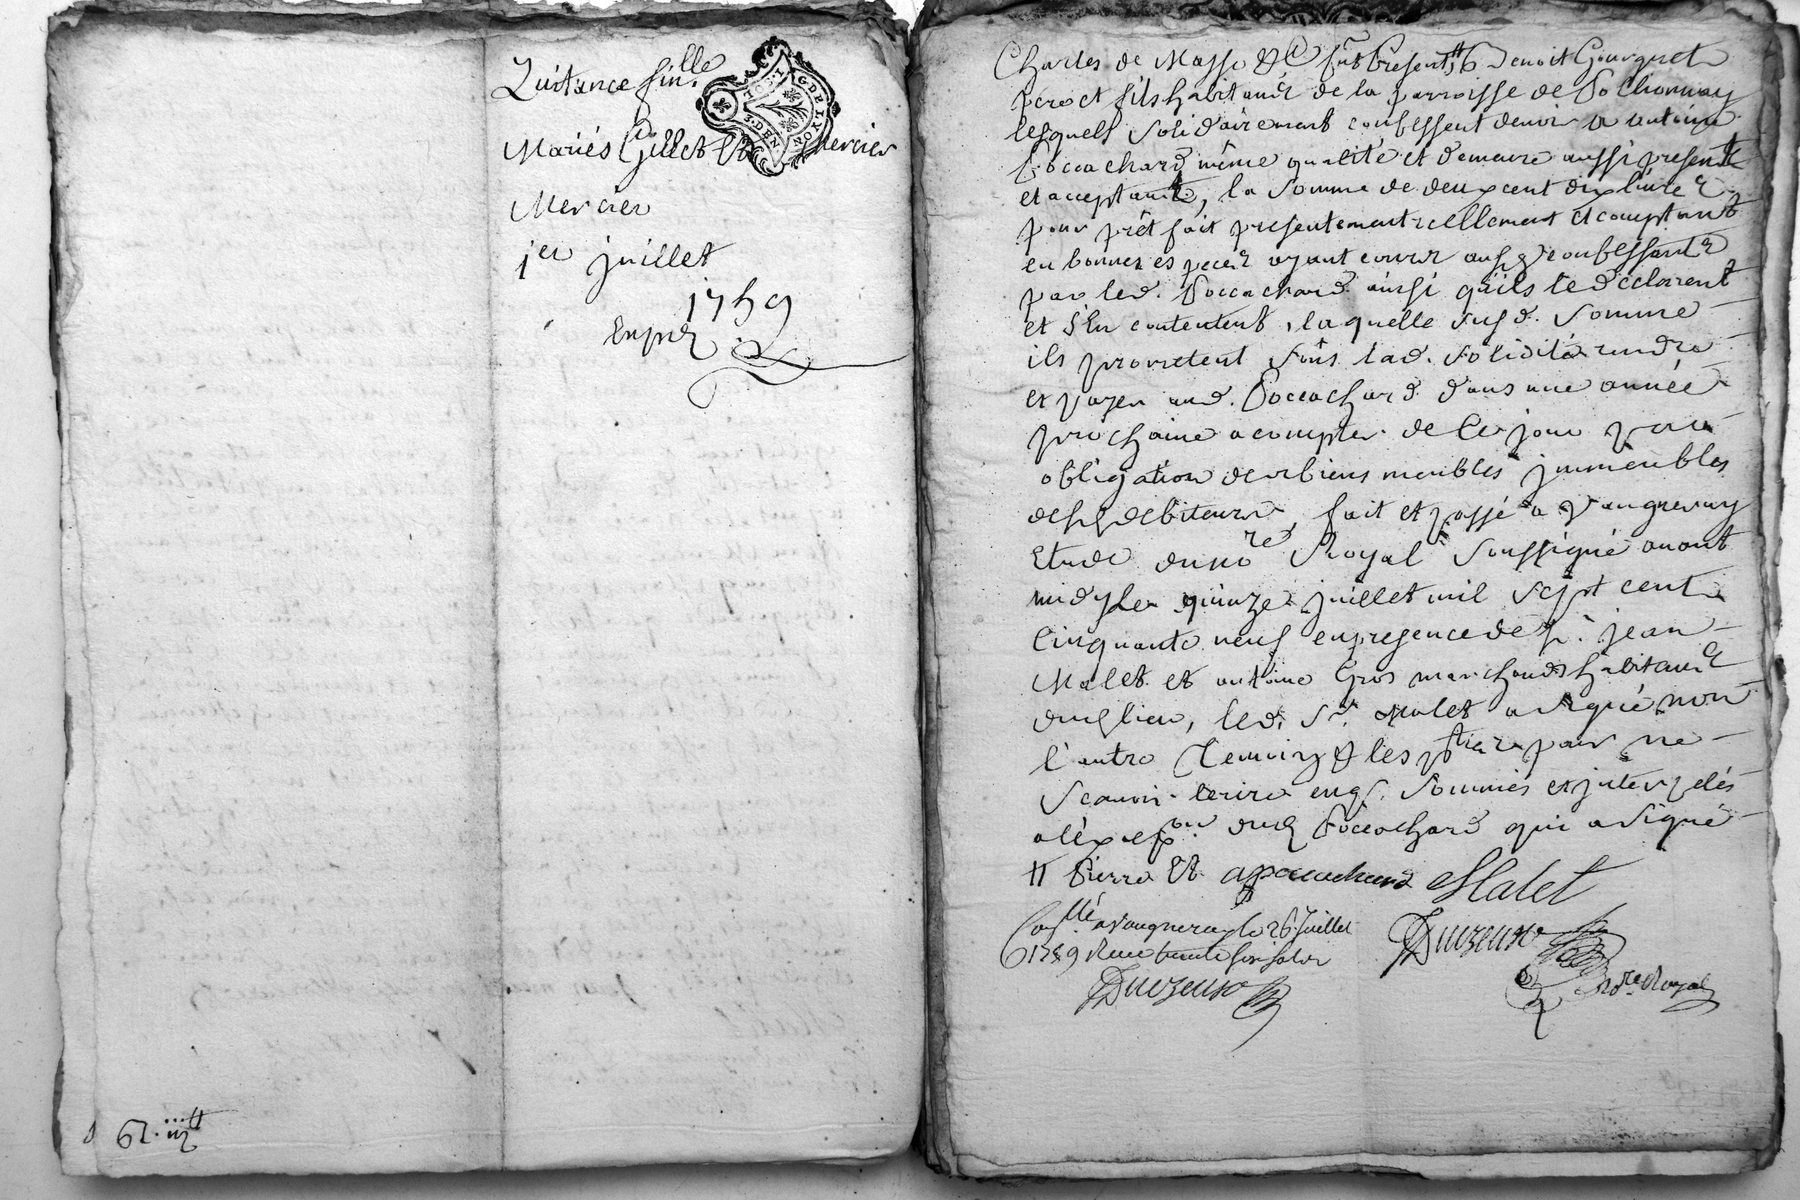 Quitance fin.lle
G DE LYON
3. DEN.
Mariés Gillet & Mercier
Mercier
1er juillet
1759
Exped
Charles de Masso &a fut present, # & Benoit Gourguet
pere et fils habitants de la parroisse de Pollionnay
lesquels solidairement confessent devoir a antoine
Poccachard même qualité et demeure aussi present
et acceptant, la somme de deux cent dix livres
pour prêt fait presentement reellement et comptant
en bonnes especes ayant cours auxd confessants
par led. Poccachard ainsi qu'ils le déclarent
et s'en contentent, laquelle susd. somme
ils promettent sous lad. solidité rendre
et payer aud. Poccachard dans une année
prochaine a compter de ce jour par
obligation de ses biens meubles immeubles
desd debiteurs, fait et passé a Vaugneray
Etude du no.re Royal soussigné avant
midy Le quinze juillet mil sept cent
cinquante neuf en presence de Sr. jean
Malet et antoine Gros marchands habitants
dud lieu, led. Sr. Malet a signé non
l'autre temoin & les p.ties pour ne
scavoir ecrire enq. sommés et interpelés
a l'exep.on dud Poccachard qui a signé
# Pierre & a poccachard Malet
Con.llé a Vaugneray le 26 juillet
1759 Receu trente six sols
no.re Royal